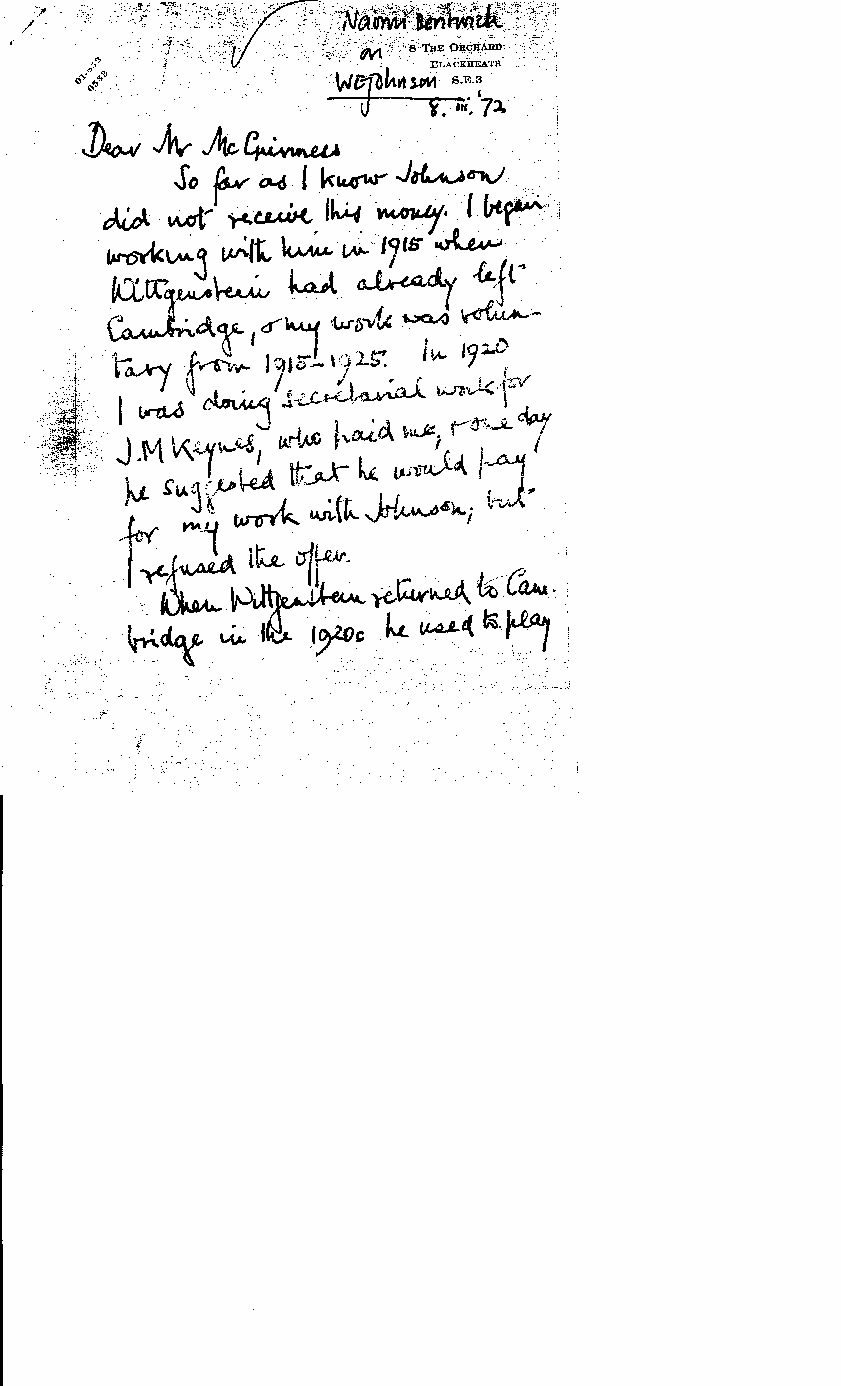 Naomi Bentwich
on
W E Johnson
8 THE ORCHARD
BLACKHEATH
S.E.3
8. III. '72
01-852
0532
Dear Mr McGuinness
So far as I know Johnson
did not receive this money. I began
working with him in 1915 when
Wittgenstein had already left
Cambridge, & my work was volun-
tary from 1915–1925. In 1920
I was doing secretarial work for
J.M Keynes, who paid me, & one day
he suggested that he would pay
for my work with Johnson; but
I refused the offer.
When Wittgenstein returned to Cam-
bridge in the 1920s he used to play